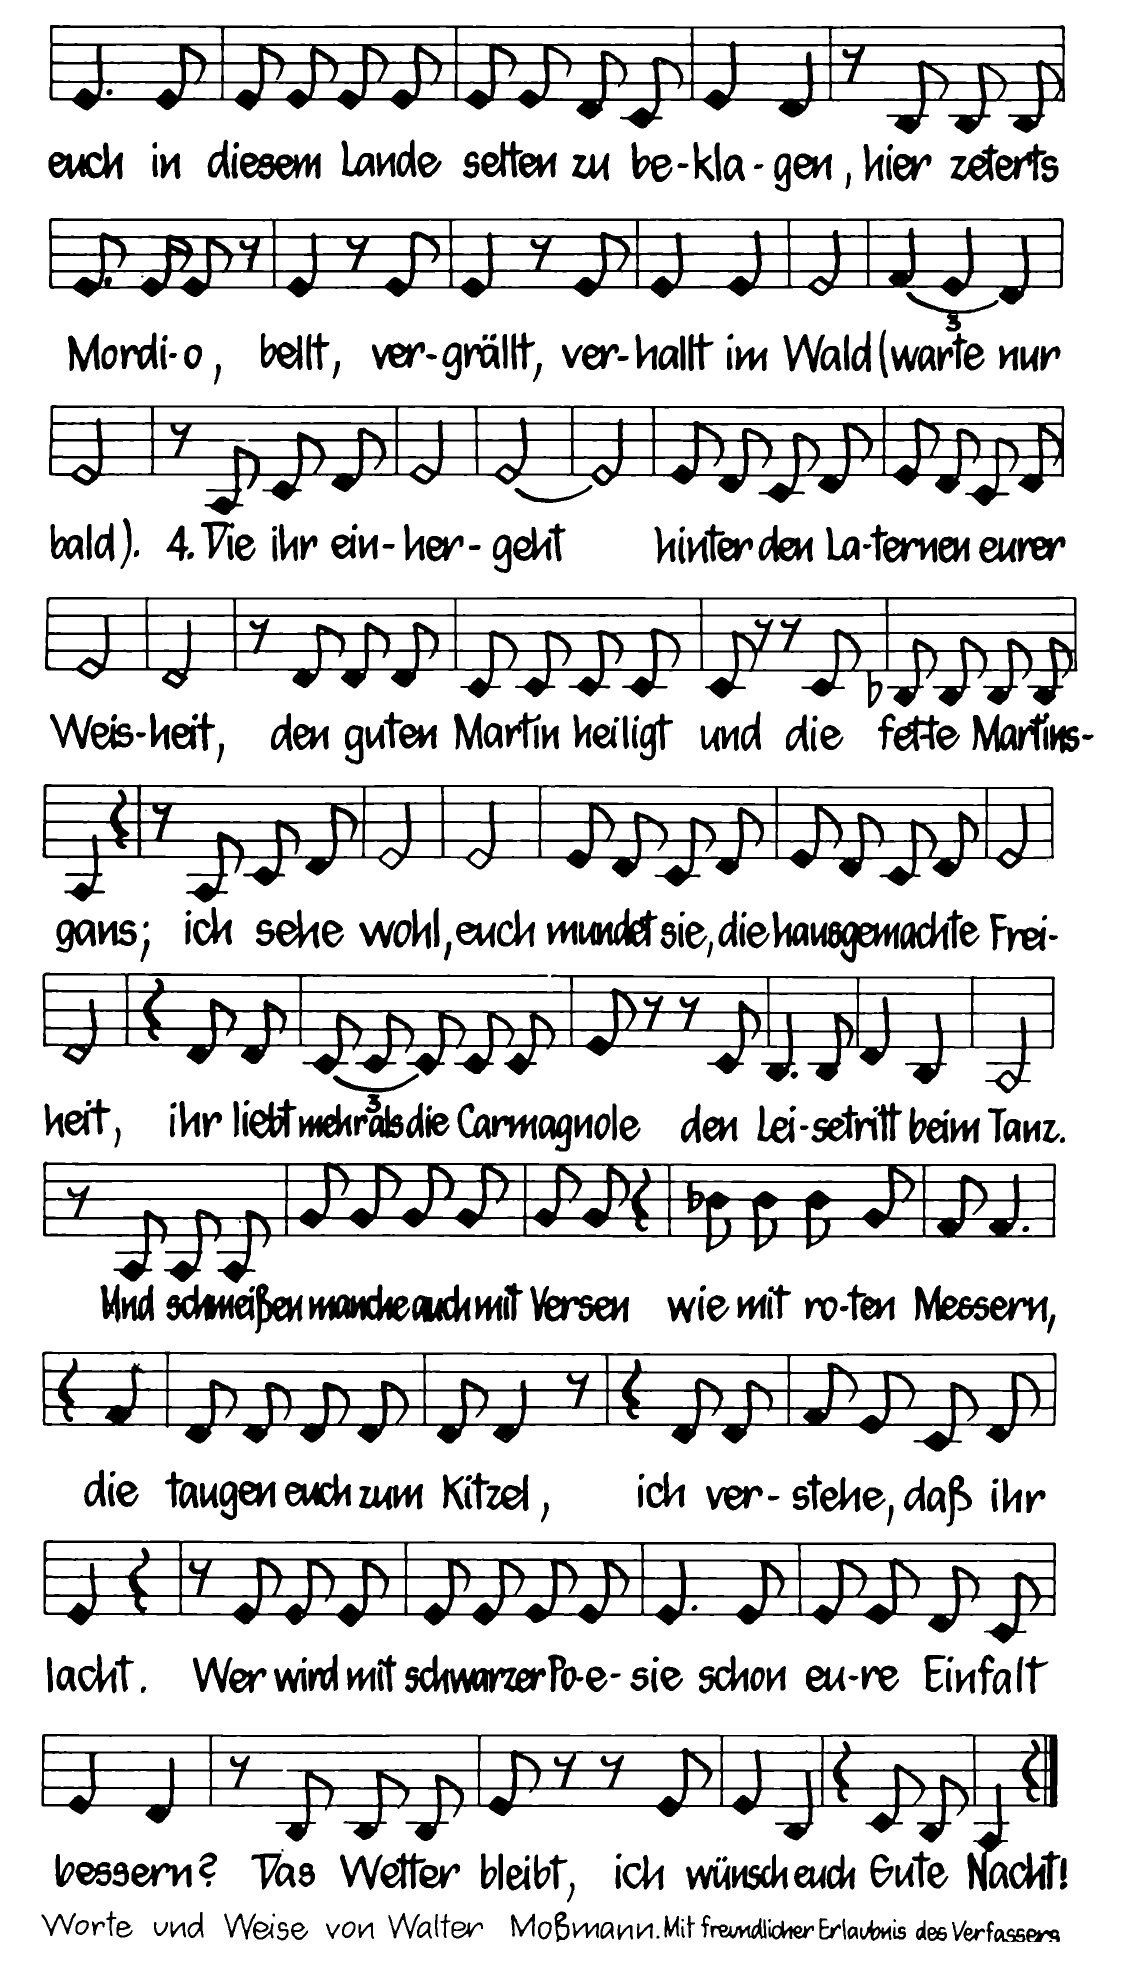 euch in diesem Lande selten zu be-kla-gen, hier zeterts
Mordi-o, bellt, ver-grällt, ver-hallt im Wald (warte nur
3
bald). 4. Die ihr ein-her-geht hinter den La-ternen eurer
Weis-heit, den guten Martin heiligt und die fette Martins-
gans; ich sehe wohl, euch mundet sie, die hausgemachte Frei-
heit, ihr liebt mehr als die Carmagnole den Lei-setritt beim Tanz.
3
Und schmeißen manche auch mit Versen wie mit ro-ten Messern,
die taugen euch zum Kitzel, ich ver-stehe, daß ihr
lacht. Wer wird mit schwarzer Po-e-sie schon eu-re Einfalt
bessern? Das Wetter bleibt, ich wünsch euch Gute Nacht!
Worte und Weise von Walter Moßmann. Mit freundlicher Erlaubnis des Verfassers